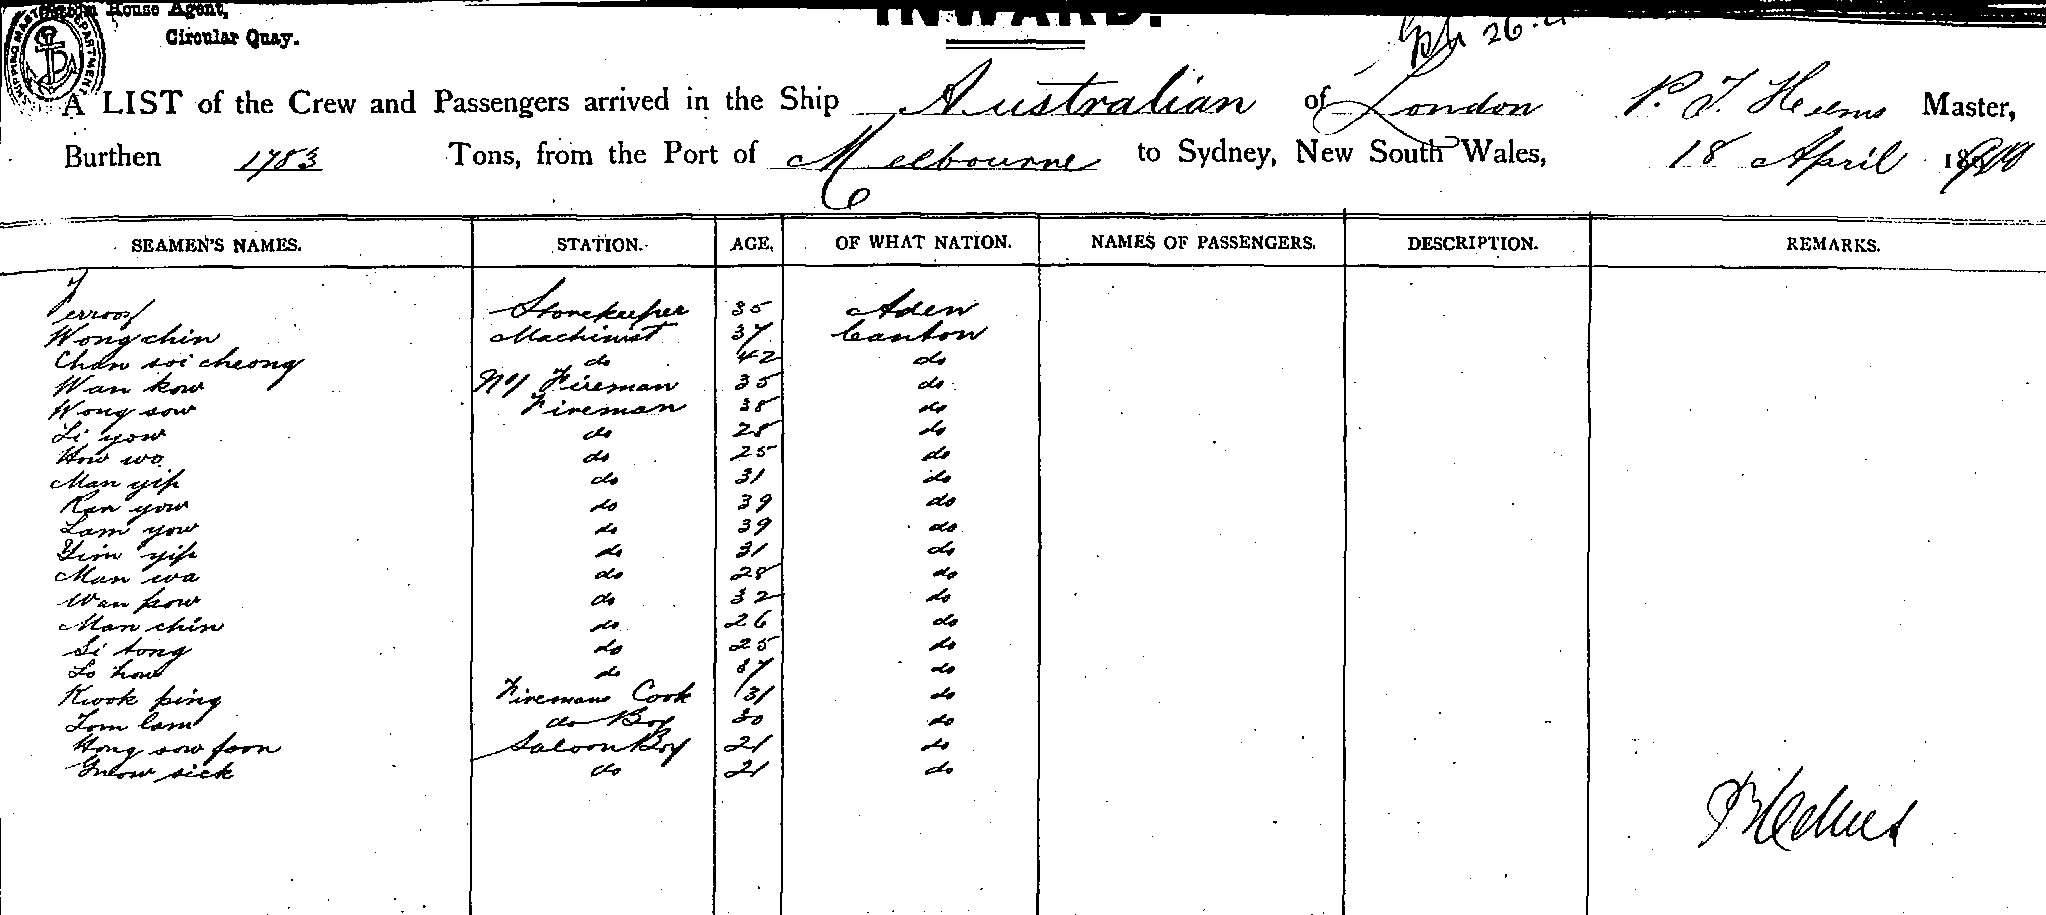 House Agent,
Circular Quay.
INWARD.
26.4
A LIST of the Crew and Passengers arrived in the Ship Australian of London P. T. Helms Master,
Burthen 1783 Tons, from the Port of Melbourne to Sydney, New South Wales, 18 April
SEAMEN'S NAMES. STATION. AGE. OF WHAT NATION. NAMES OF PASSENGERS. DESCRIPTION. REMARKS.
Storekeeper 35 Aden
Wong chin Machinist 37 Canton
Chan soi cheong do 42 do
Wan kow No 1 Fireman 35 do
Wong sow Fireman 38 do
Li yow do 28 do
How wo do 25 do
Man yip do 31 do
Kan yow do 39 do
Lam yow do 39 do
Yim yip do 31 do
Man wa do 28 do
Wan pow do 32 do
Man chin do 26 do
Li tong do 25 do
Lo how do 37 do
Kwok ping Firemans Cook 31 do
Tom lam do Boy 30 do
Hong sow foon Saloon Boy 21 do
sick do 21 do